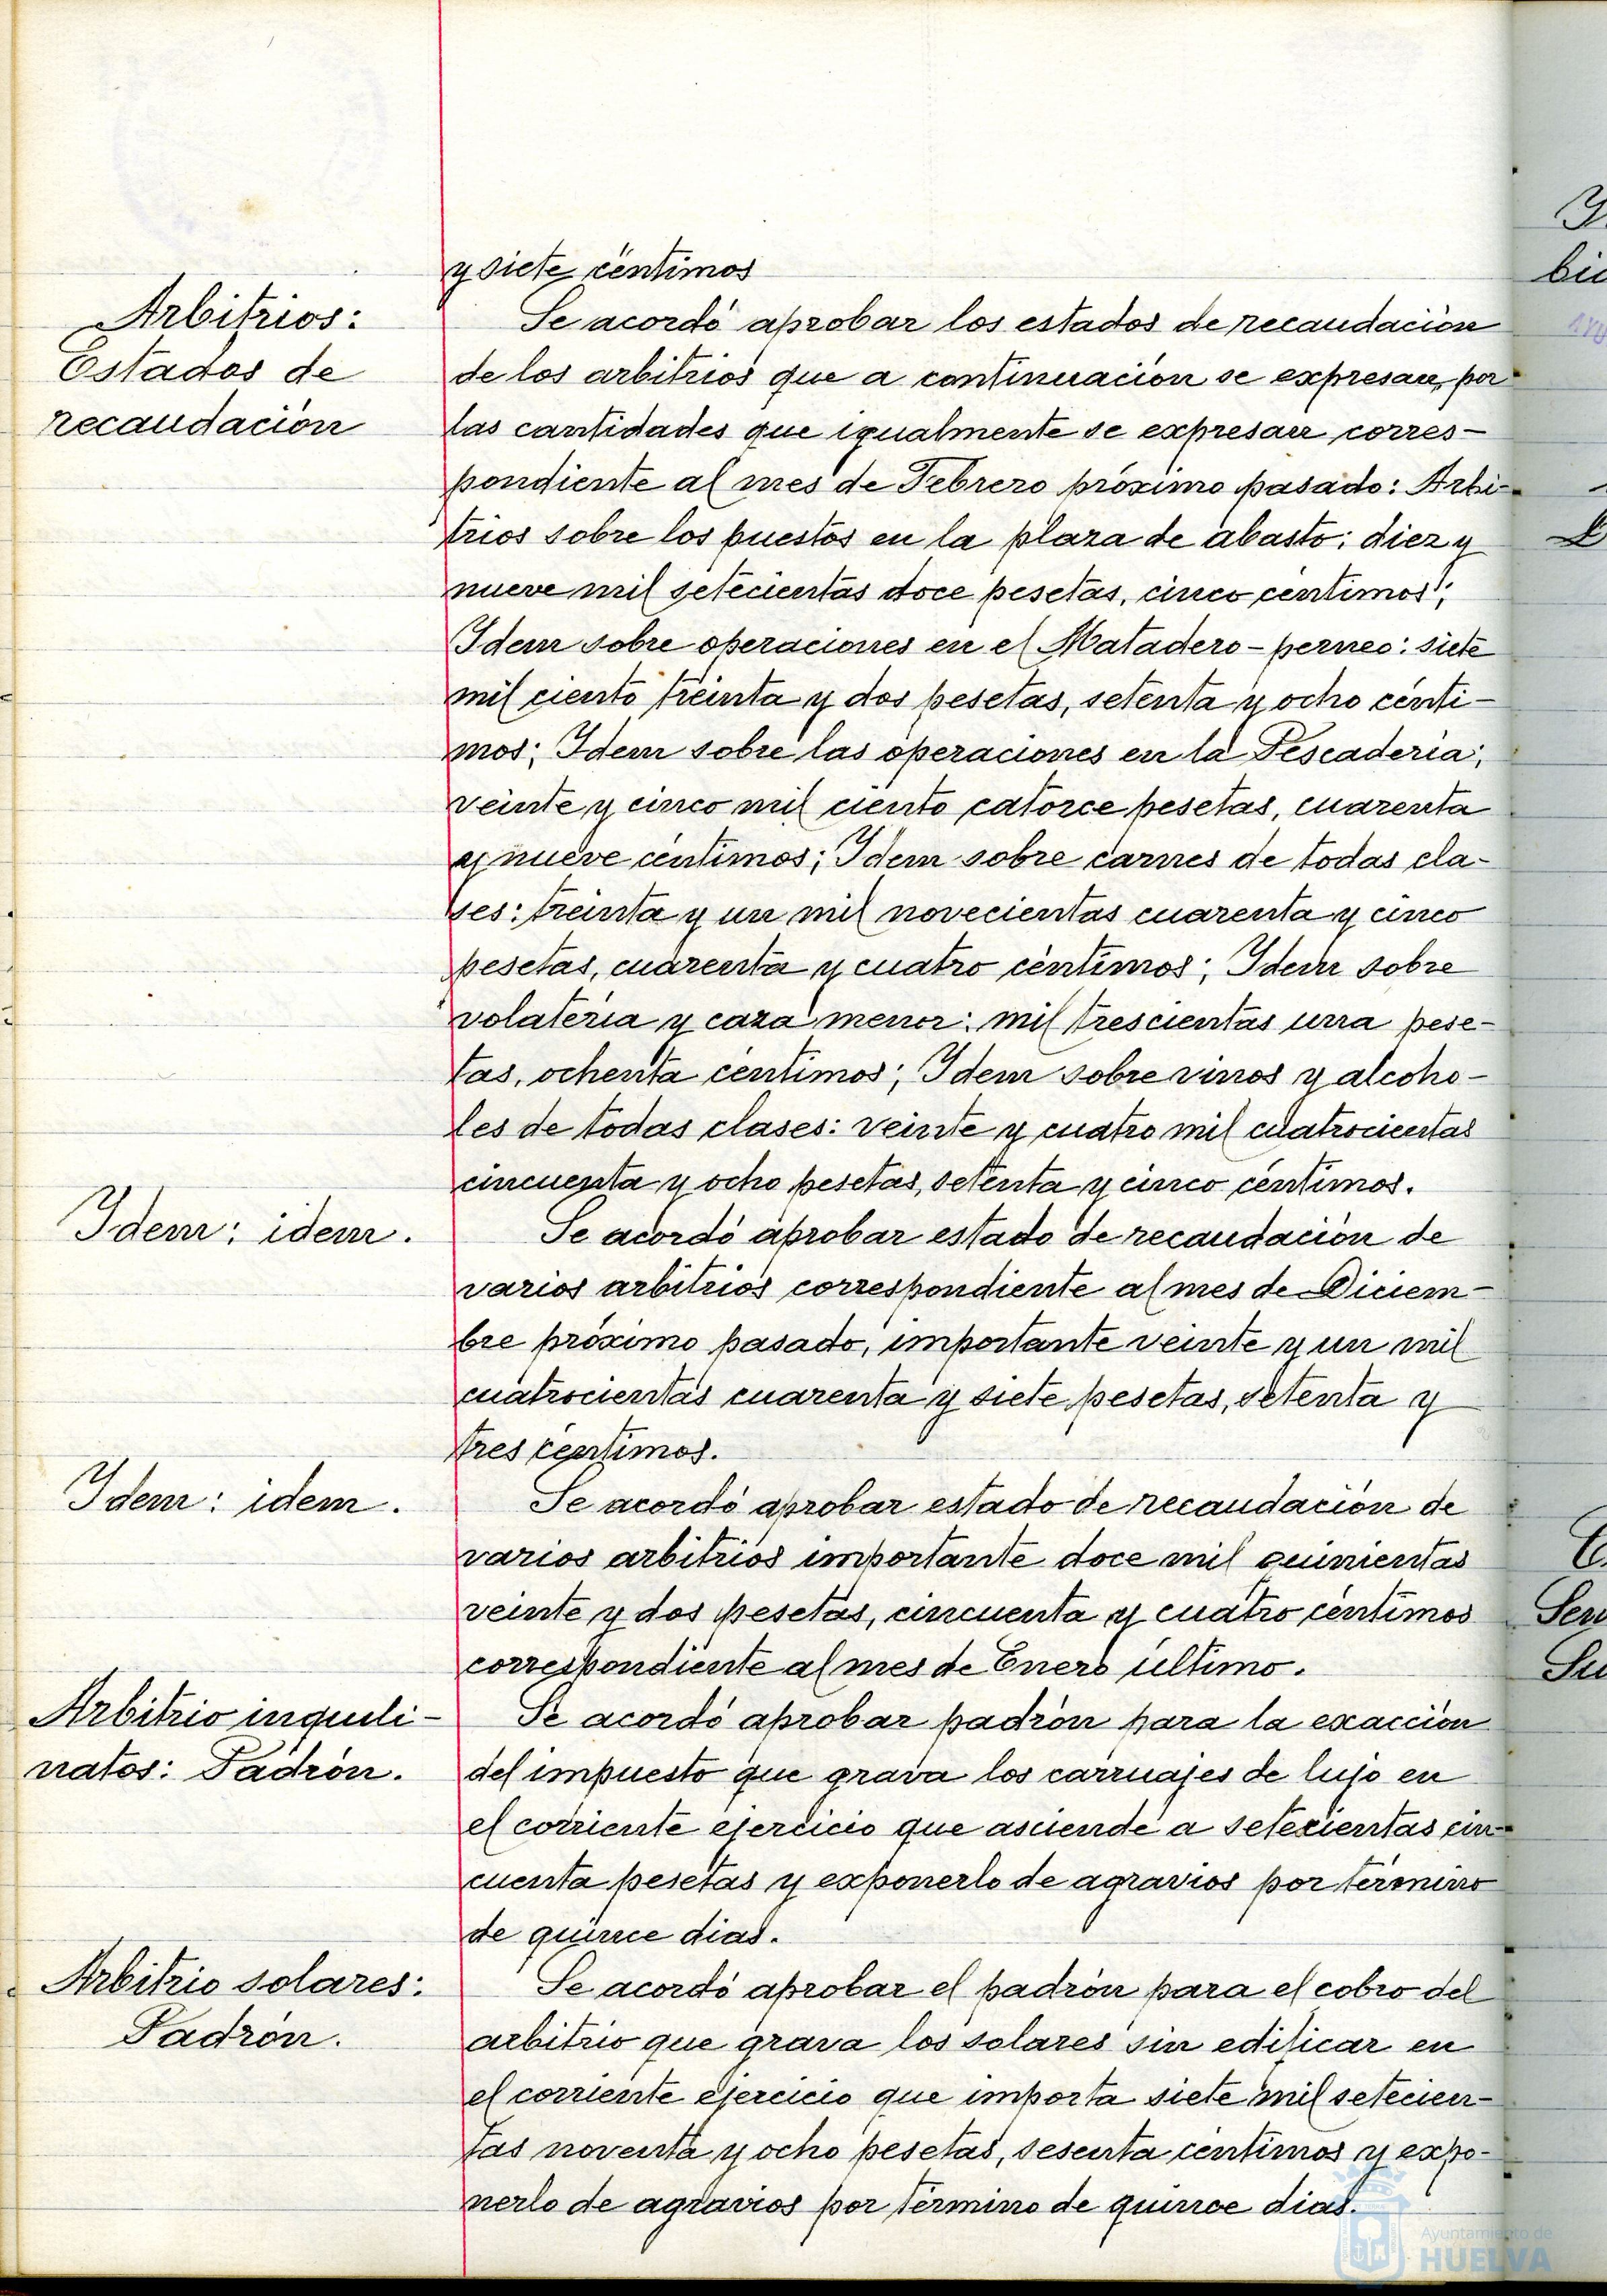 y siete céntimos
Arbitrios:
Estados de
recaudación
Se acordó aprobar los estados de recaudación
de los arbitrios que a continuación se expresan, por
las cantidades que igualmente se expresan corres-
pondiente al mes de Febrero próximo pasado: Arbi-
trios sobre los puestos en la plaza de abasto: diez y
nueve mil setecientas doce pesetas, cinco centimos;
Idem sobre operaciones en el Matadero-perneo: siete
mil ciento treinta y dos pesetas, setenta y ocho cénti-
mos; Idem sobre las operaciones en la Pescaderia;
veinte y cinco mil ciento catorce pesetas, cuarenta
y nueve centimos; Idem sobre carnes de todas cla-
ses: treinta y un mil novecientas cuarenta y cinco
pesetas, cuarenta y cuatro céntimos; Idem sobre
volateria y caza menor: mil trescientas una pese-
tas, ochenta centimos; Idem sobre vinos y alcoho-
les de todas clases: veinte y cuatro mil cuatrocientas
cincuenta y ocho pesetas, setenta y cinco céntimos.
Idem: idem.
Se acordó aprobar estado de recaudación de
varios arbitrios correspondiente al mes de Diciem-
bre próximo pasado, importante veinte y un mil
cuatrocientas cuarenta y siete pesetas, setenta y
tres centimos.
Idem: idem.
Se acordó aprobar estado de recaudación de
varios arbitrios importante doce mil quinientas
veinte y dos pesetas, cincuenta y cuatro céntimos
correspondiente al mes de Enero último.
Arbitrio inquili-
natos: Padrón.
Se acordó aprobar padrón para la exacción
del impuesto que grava los carruajes de lujo en
el corriente ejercicio que asciende a setecientas cin-
cuenta pesetas y exponerlo de agravios por término
de quince dias.
Arbitrio solares:
Padrón.
Se acordó aprobar el padrón para el cobro del
arbitrio que grava los solares sin edificar en
el corriente ejercicio que importa siete mil setecien-
tas noventa y ocho pesetas, sesenta centimos y expo-
nerlo de agravios por término de quince dias.
Ayuntamiento de
HUELVA